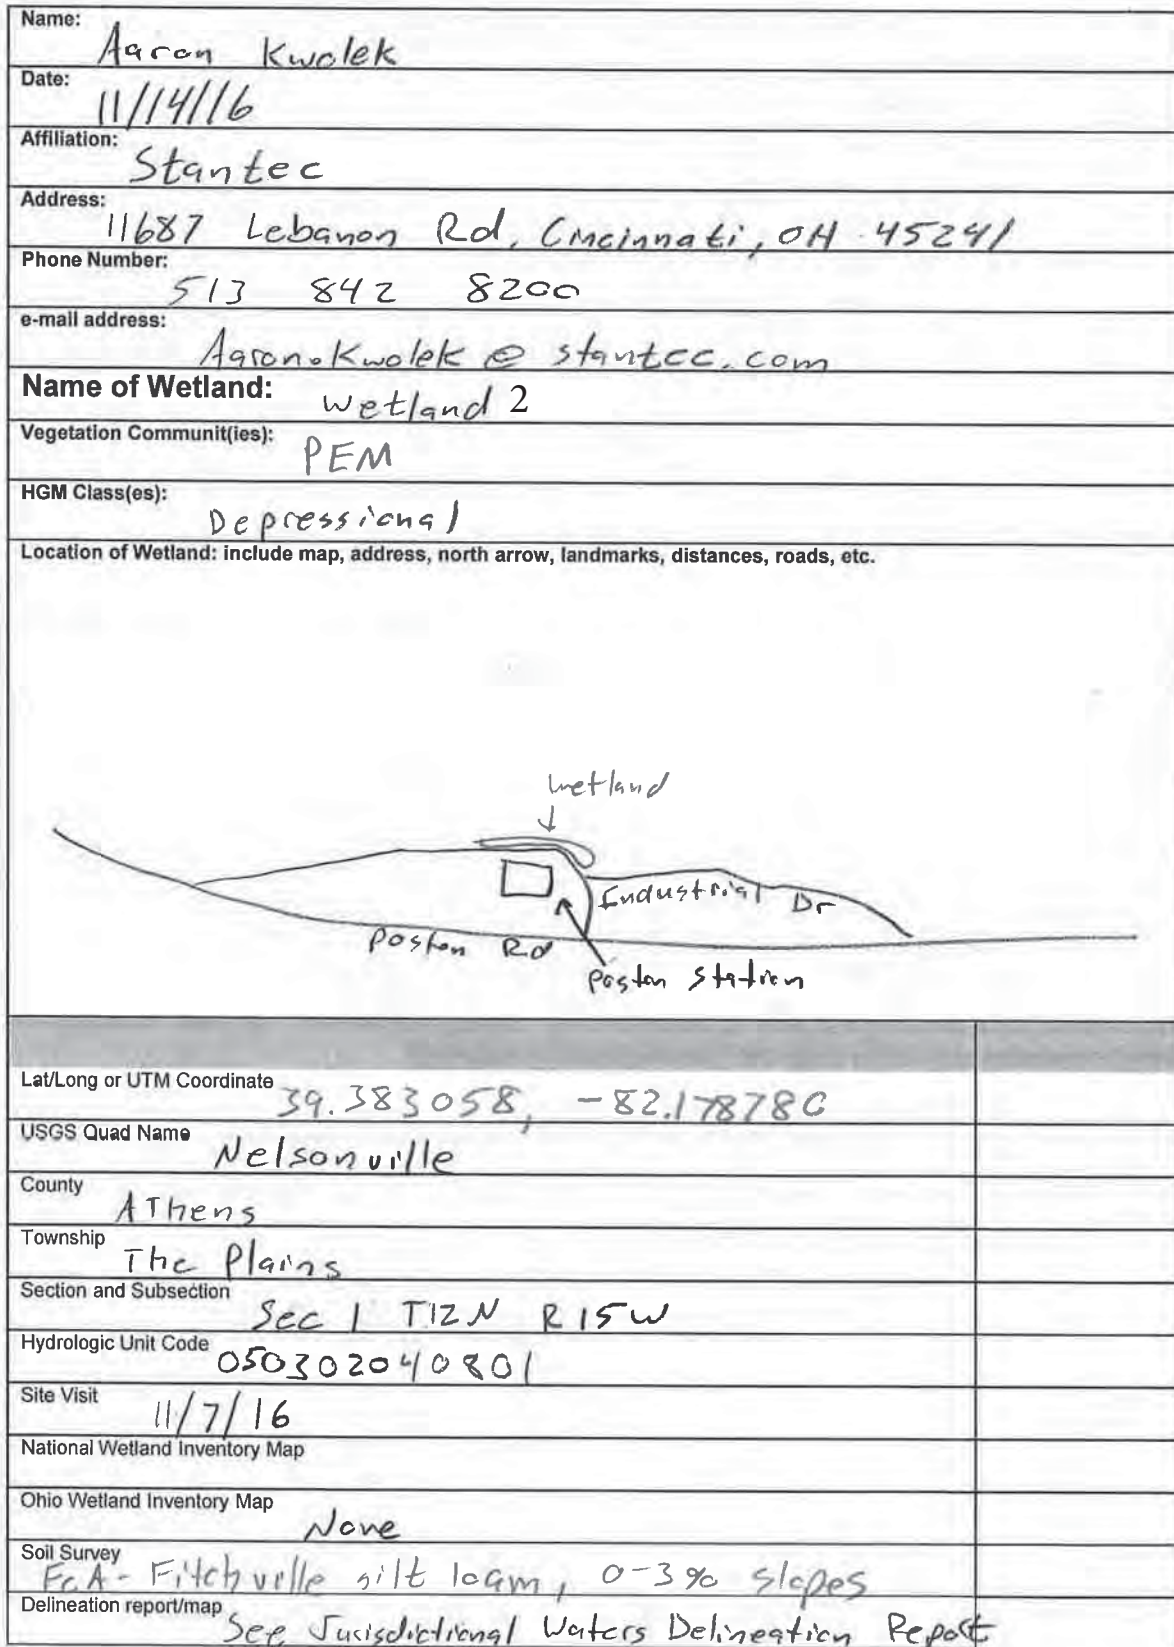 Name:
Aaron Kwolek
Date:
11/14/16
Affiliation:
Stantec
Address:
11687 Lebanon Rd, Cincinnati, OH 45241
Phone Number:
513 842 8200
e-mail address:
Aaron.Kwolek @ stantec.com
Name of Wetland: Wetland 2
Vegetation Communit(ies):
PEM
HGM Class(es):
Depressional
Location of Wetland: include map, address, north arrow, landmarks, distances, roads, etc.
Wetland
Industrial Dr
Poston Rd
Poston Station
Lat/Long or UTM Coordinate 39.383058, -82.178780
USGS Quad Name
Nelsonville
County
Athens
Township
The Plains
Section and Subsection
Sec 1 T12N R15W
Hydrologic Unit Code
050302040801
Site Visit
11/7/16
National Wetland Inventory Map
Ohio Wetland Inventory Map
None
Soil Survey
FcA - Fitchville silt loam, 0-3% slopes
Delineation report/map
See Jurisdictional Waters Delineation Report